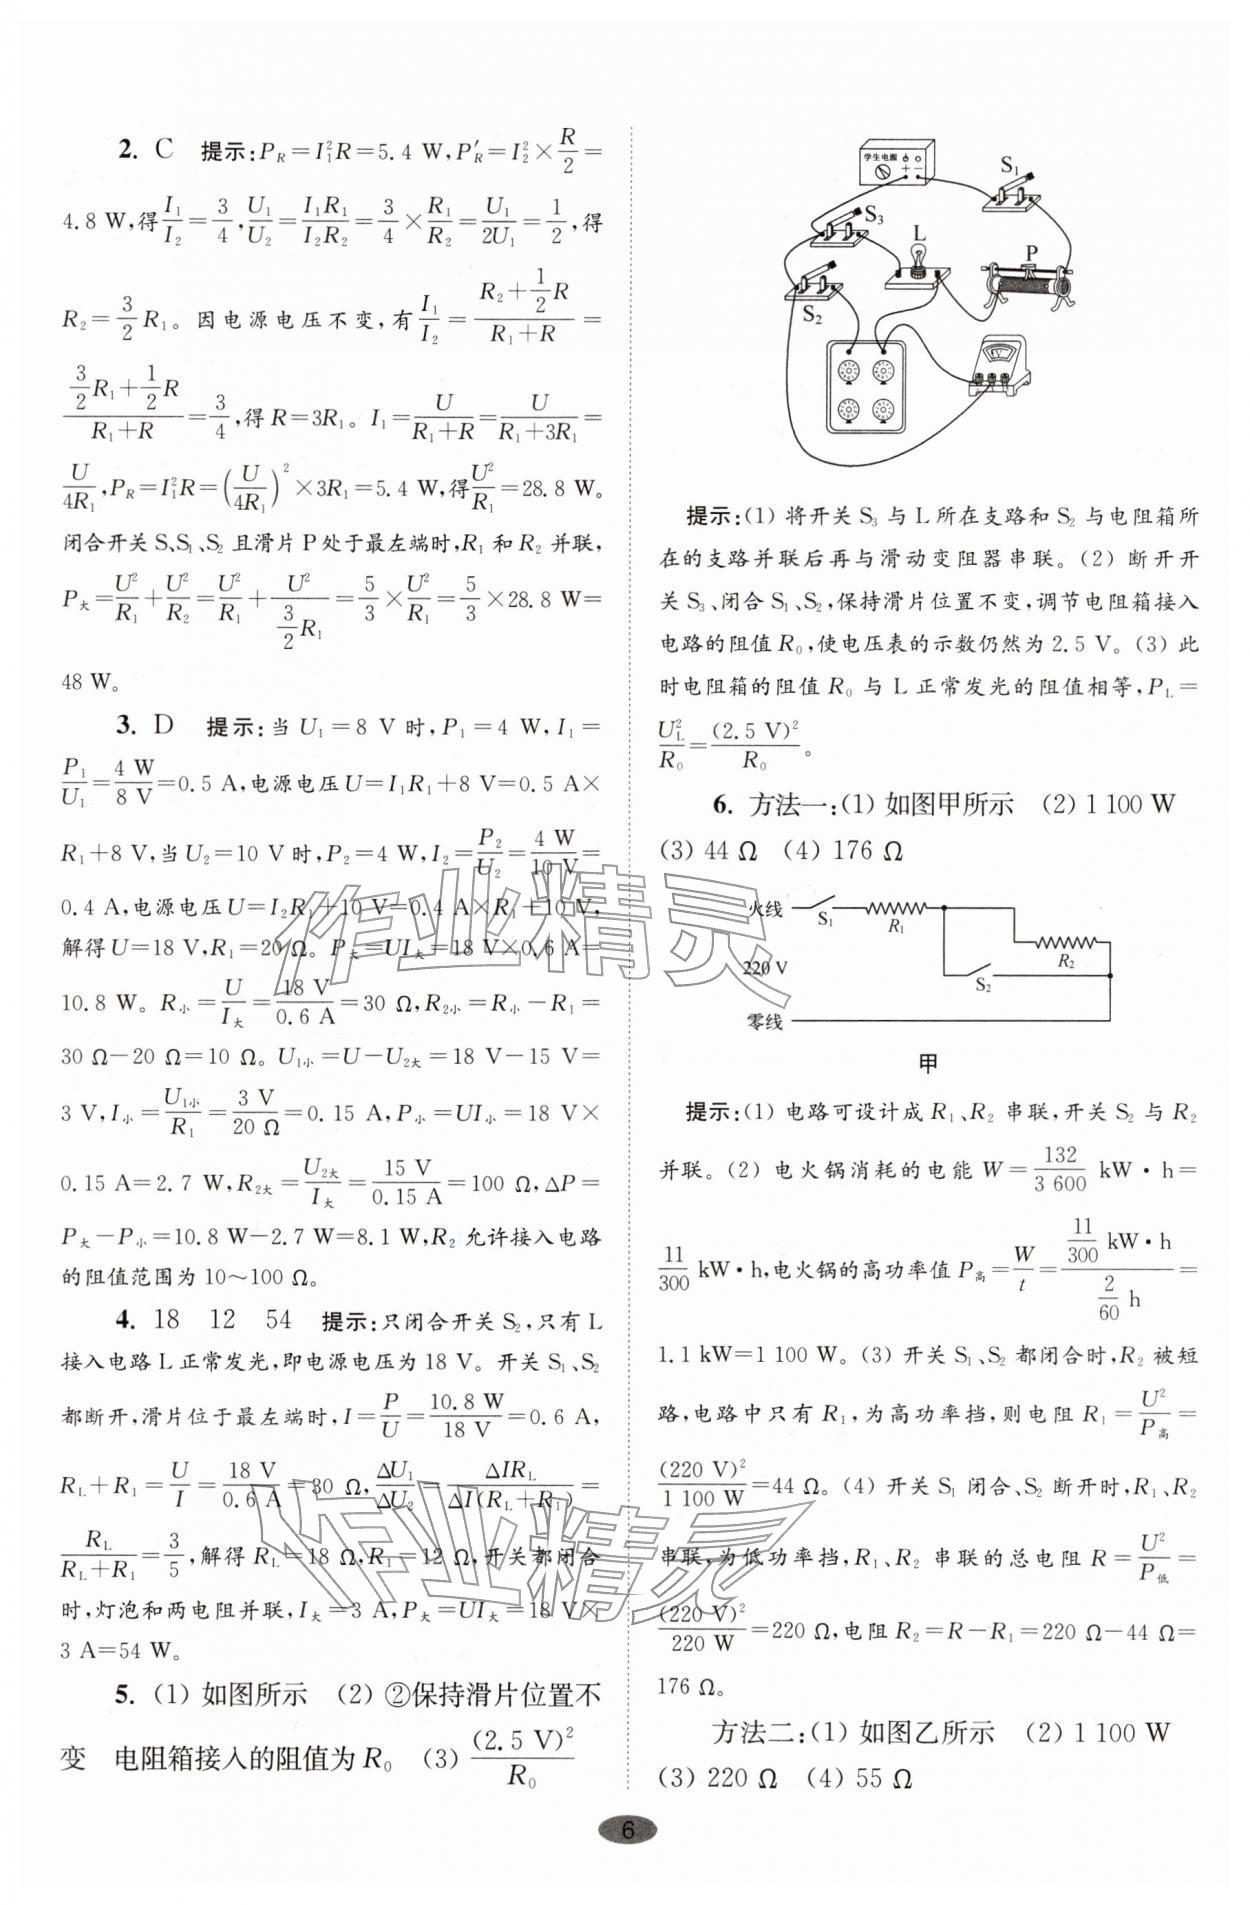 2. C 提示:P_R=I₁²R=5.4 W,P′_R=I₂²×R/2=
4.8 W,得I₁/I₂=3/4,U₁/U₂=I₁R₁/I₂R₂=3/4×R₁/R₂=U₁/2U₁=1/2,得
R₂=3/2R₁。因电源电压不变,有I₁/I₂=(R₂+1/2R)/(R₁+R)=
(3/2R₁+1/2R)/(R₁+R)=3/4,得R=3R₁。I₁=U/(R₁+R)=U/(R₁+3R₁)=
U/4R₁,P_R=I₁²R=(U/4R₁)²×3R₁=5.4 W,得U²/R₁=28.8 W。
闭合开关S、S₁、S₂且滑片P处于最左端时,R₁和R₂并联,
P大=U²/R₁+U²/R₂=U²/R₁+U²/(3/2R₁)=5/3×U²/R₁=5/3×28.8 W=
48 W。
3. D 提示:当U₁=8 V时,P₁=4 W,I₁=
P₁/U₁=4 W/8 V=0.5 A,电源电压U=I₁R₁+8 V=0.5 A×
R₁+8 V,当U₂=10 V时,P₂=4 W,I₂=P₂/U₂=4 W/10 V=
0.4 A,电源电压U=I₂R₁+10 V=0.4 A×R₁+10 V,
解得U=18 V,R₁=20 Ω。P大=UI大=18 V×0.6 A=
10.8 W。R小=U/I大=18 V/0.6 A=30 Ω,R₂小=R小-R₁=
30 Ω-20 Ω=10 Ω。U₁小=U-U₂大=18 V-15 V=
3 V,I小=U₁小/R₁=3 V/20 Ω=0.15 A,P小=UI小=18 V×
0.15 A=2.7 W,R₂大=U₂大/I大=15 V/0.15 A=100 Ω,ΔP=
P大-P小=10.8 W-2.7 W=8.1 W,R₂允许接入电路
的阻值范围为10~100 Ω。
4. 18 12 54 提示:只闭合开关S₂,只有L
接入电路L正常发光,即电源电压为18 V。开关S₁、S₂
都断开,滑片位于最左端时,I=P/U=10.8 W/18 V=0.6 A,
R_L+R₁=U/I=18 V/0.6 A=30 Ω,ΔU₁/ΔU₂=ΔIR_L/ΔI(R_L+R₁)=
R_L/(R_L+R₁)=3/5,解得R_L=18 Ω,R₁=12 Ω,开关都闭合
时,灯泡和两电阻并联,I大=3 A,P大=UI大=18 V×
3 A=54 W。
5. (1) 如图所示 (2) ②保持滑片位置不
变 电阻箱接入的阻值为R₀ (3) (2.5 V)²/R₀
学生电源
S₁
S₃
L
P
S₂
V
提示:(1) 将开关S₃与L所在支路和S₂与电阻箱所
在的支路并联后再与滑动变阻器串联。(2) 断开开
关S₃、闭合S₁、S₂,保持滑片位置不变,调节电阻箱接入
电路的阻值R₀,使电压表的示数仍然为2.5 V。(3) 此
时电阻箱的阻值R₀与L正常发光的阻值相等,P_L=
U_L²/R₀=(2.5 V)²/R₀。
6. 方法一:(1) 如图甲所示 (2) 1 100 W
(3) 44 Ω (4) 176 Ω
火线 S₁ R₁
R₂
220 V S₂
零线
甲
提示:(1) 电路可设计成R₁、R₂串联,开关S₂与R₂
并联。(2) 电火锅消耗的电能W=132/3 600 kW·h=
11/300 kW·h,电火锅的高功率值P高=W/t=(11/300 kW·h)/(2/60 h)=
1.1 kW=1 100 W。(3) 开关S₁、S₂都闭合时,R₂被短
路,电路中只有R₁,为高功率挡,则电阻R₁=U²/P高=
(220 V)²/1 100 W=44 Ω。(4) 开关S₁闭合、S₂断开时,R₁、R₂
串联,为低功率挡,R₁、R₂串联的总电阻R=U²/P低=
(220 V)²/220 W=220 Ω,电阻R₂=R-R₁=220 Ω-44 Ω=
176 Ω。
方法二:(1) 如图乙所示 (2) 1 100 W
(3) 220 Ω (4) 55 Ω
6
作业精灵
作业精灵